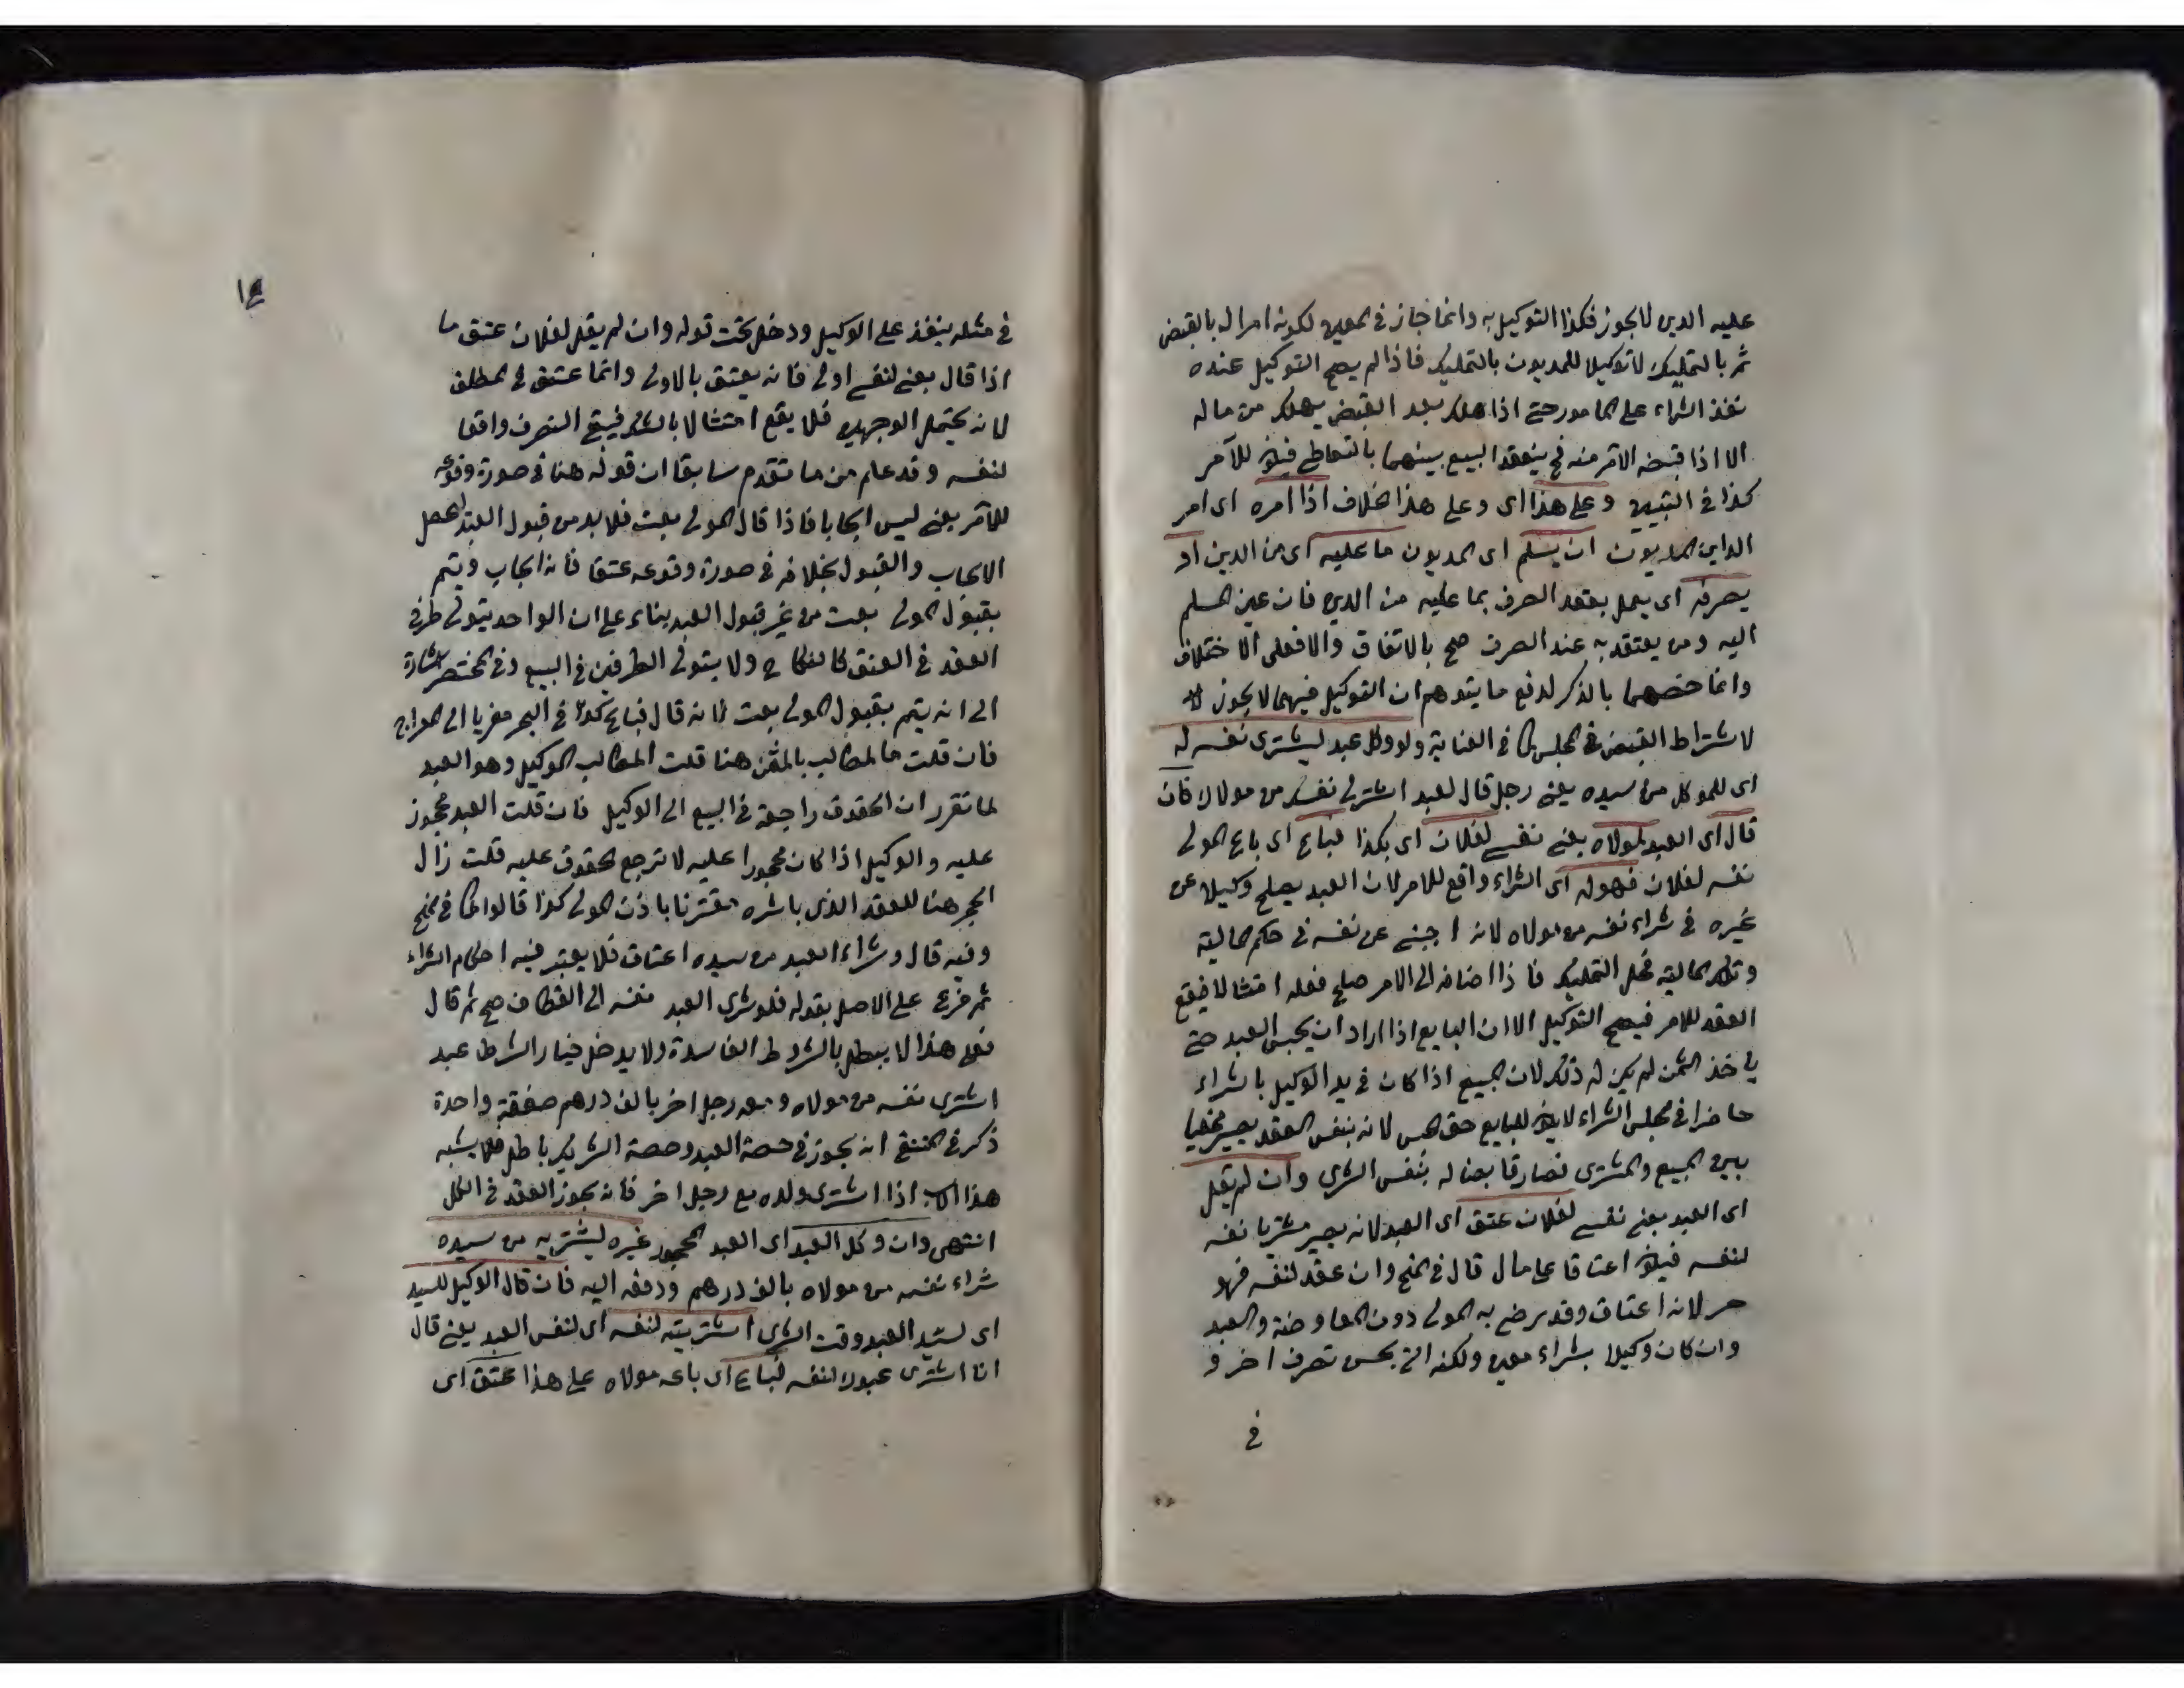 عليه الدين لا يجوز فكذا التوكيل به وانما جاز في المعين لكونه امرا له بالقبض
ثم بالتمليك لا توكيلا للمديون بالتمليك فاذا لم يصح التوكيل عنده
نفذ الشراء على المامور حتى اذا هلك بعد القبض يهلك من ماله
الا اذا قبضه الآمر منه فح ينعقد البيع بينهما بالتعاطي فيكون للآمر
كذا في التبيين وعلى هذا اى وعلى هذا الخلاف اذا امره اى امر
الداين المديون ان يسلم اى المديون ما عليه اى من الدين او
يصرفه اى يعمل بعقد الصرف بما عليه من الدين فان عين المسلم
اليه ومن يعتقد به عند الصرف صح بالاتفاق والا فعلى الاختلاف
وانما خصهما بالذكر لدفع ما يتوهم ان التوكيل فيهما لا يجوز
لاشتراط القبض في المجلس كما في العناية ولو وكل عبد ليشترى نفسه له
اى للموكل من سيده يعنى رجل قال لعبد اشتر لى نفسك من مولاك فان
قال اى العبد لمولاه بعنى نفسى لفلان اى بكذا فباع اى باع المولى
نفسه لفلان فهو له اى الشراء واقع للامر لان العبد يصلح وكيلا عن
غيره في شراء نفسه من مولاه لانه اجنبى عن نفسه في حكم المالية
وتلك المالية محل التمليك فاذا اضافه الى الامر صلح فعله امتثالا فيقع
العقد للامر فيصح التوكيل الا ان البايع اذا اراد ان يحبس العبد حتى
ياخذ الثمن لم يكن له ذلك لان المبيع اذا كان في يد الوكيل بالشراء
حاضرا في مجلس الشراء لا يكون للبايع حق الحبس لانه بنفس العقد يصير مخليا
بين المبيع والمشترى فصار قابضا له بنفس الشرى وان لم يقل
اى العبد بعنى نفسى لفلان عتق اى العبد لانه يصير مشتريا نفسه
لنفسه فيكون اعتاقا على مال قال في المنح وان عقد لنفسه فهو
حر لانه اعتاق وقد رضى به المولى دون المعاوضة والعبد
وان كان وكيلا بشراء معين ولكنه اتى بجنس تصرف اخر و
في
في مثله ينفذ على الوكيل ودخل تحت قوله وان لم يقل لفلان عتق ما
اذا قال بعنى لنفسى اولى فانه يعتق بالاولى وانما عتق في المطلق
لانه يحتمل الوجهين فلا يقع امتثالا بالشك فيبقى التصرف واقعا
لنفسه وقد علم من ما تقدم سابقا ان قوله هنا في صورة وقوعه
للآمر بعنى ليس ايجابا فاذا قال المولى بعت فلا بد من قبول العبد ليحصل
الايجاب والقبول بخلافه في صورة وقوعه عتقا فانه ايجاب ويتم
بقبول المولى بعت من غير قبول العبد بناء على ان الواحد يتولى طرفى
العقد في العتق كالنكاح ولا يتولى الطرفين في البيع وفي المختصر اشارة
الى انه يتم بقبول المولى بعت لانه قال فباع كذا في البحر معزيا الى المعراج
فان قلت ما المطالب بالثمن هنا قلت المطالب الوكيل وهو العبد
لما تقرر ان الحقوق راجعة في البيع الى الوكيل فان قلت العبد محجور
عليه والوكيل اذا كان محجورا عليه لا ترجع الحقوق عليه قلت زال
الحجر هنا للعقد الذى باشره مقترنا باذن المولى كذا قالوا كما في المنح
وفيه قال وشراء العبد من سيده اعتاق فلا يعتبر فيه احكام الشراء
ثم فرع على الاصل بقوله فلو شرى العبد نفسه الى القطاف صح ثم قال
فعلى هذا لا يبطل بالشروط الفاسدة ولا يدخل خيار الشرط عبد
اشترى نفسه من مولاه ومعه رجل اخر بالف درهم صفقة واحدة
ذكر في المنتقى انه يجوز في حصة العبد وحصة الشريك باطل فلا يشبه
هذا الاب اذا اشترى ولده مع رجل اخر فانه يجوز العقد في الكل
انتهى وان وكل العبد اى العبد المحجور غيره ليشتريه من سيده
شراء نفسه من مولاه بالف درهم ودفعه اليه فان قال الوكيل للسيد
اى لسيد العبد وقت الشرى اشتريته لنفسه اى لنفس العبد يعنى قال
انا اشترى عبدك لنفسه فباع اى باعه مولاه على هذا عتق اى